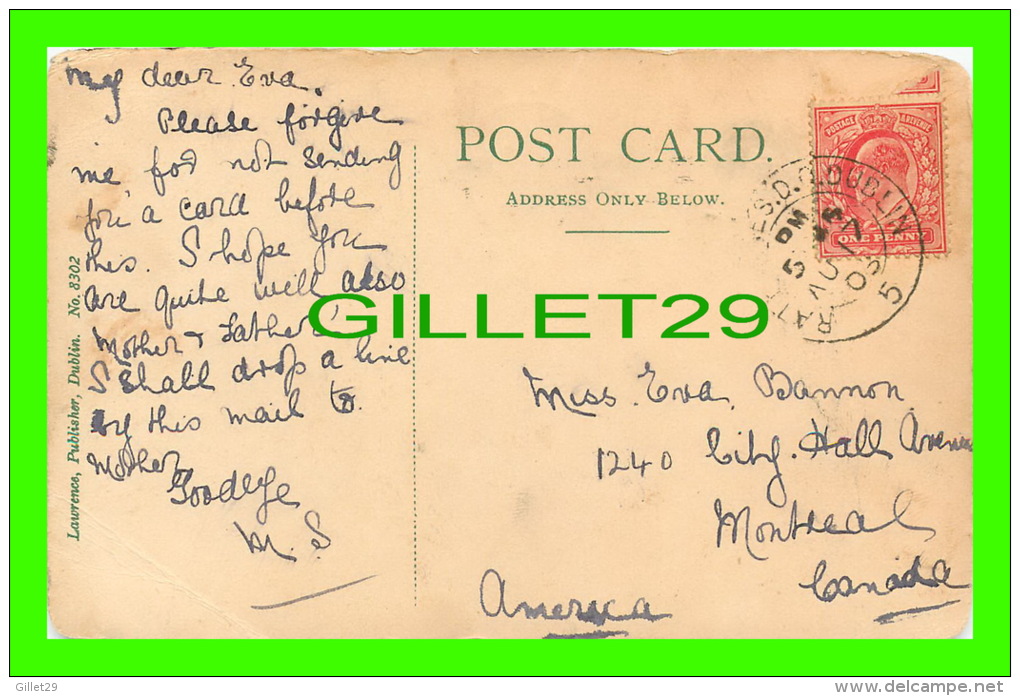 My dear Eva,
Please forgive
me, for not sending
you a card before
this. I hope you
are quite well also
Mother & Father
I shall drop a line
by this mail to
Mother
Goodbye
M. S
Lawrence, Publisher, Dublin. No. 8302
POST CARD.
ADDRESS ONLY BELOW.
POSTAGE & REVENUE
ONE PENNY
DUBLIN
5 PM
AU 17
5
GILLET29
Miss. Eva. Bannon
1240 City. Hall Avenue
Montreal
Canada
America
Gillet29
www.delcampe.net